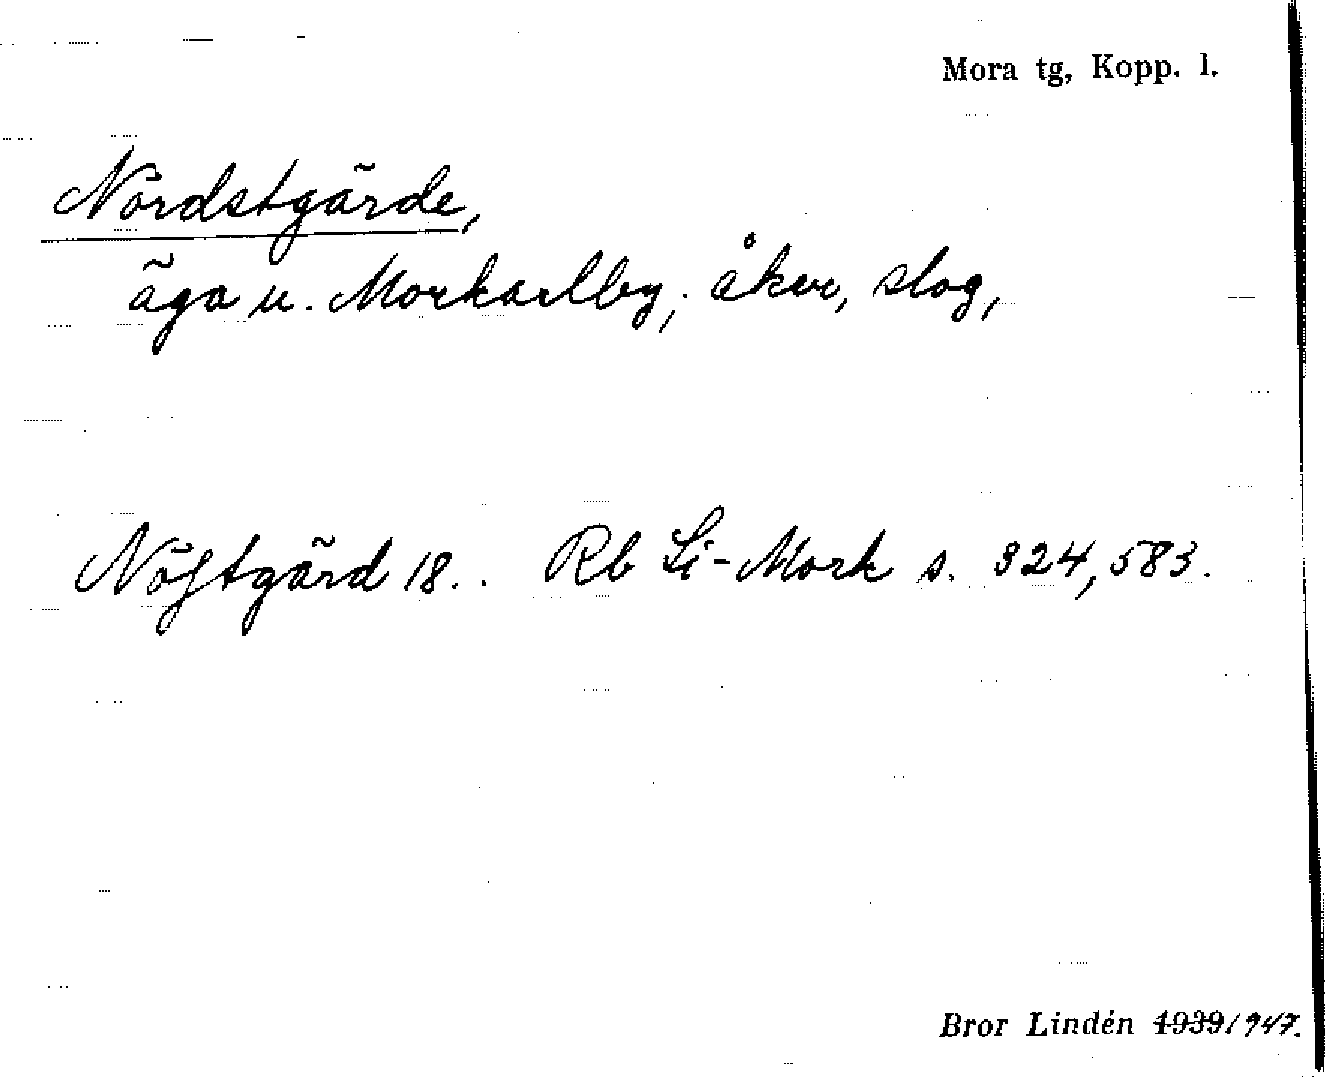 Mora tg, Kopp. l.
Nördstgärde,
äga u. Morkarlby; åker, slog,
Nöſstgärd 18.. Rb Li-Mork s. 324, 583.
Bror Lindén 1939/947.